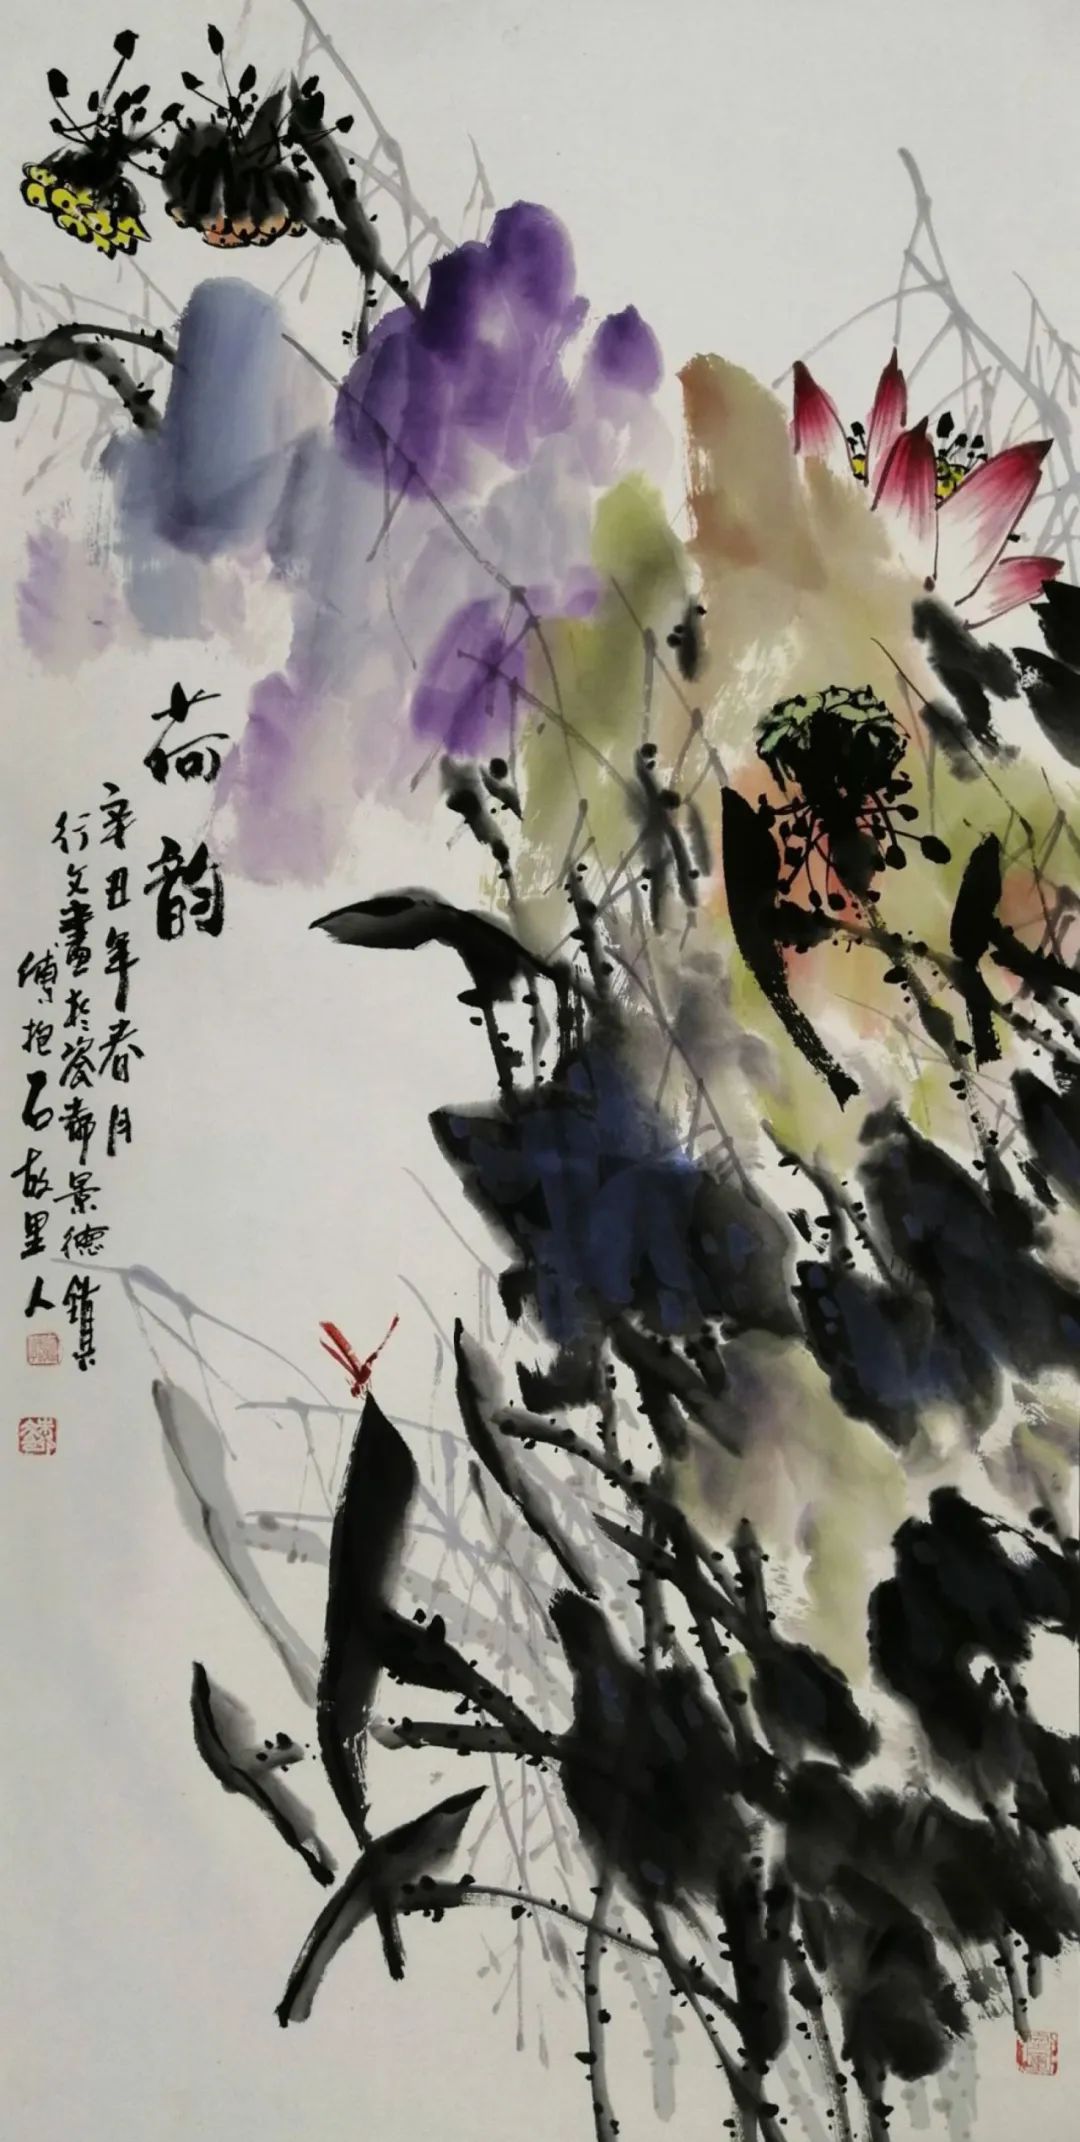 荷韵
辛丑年春月
行文画於瓷都景德镇
傅抱石故里人